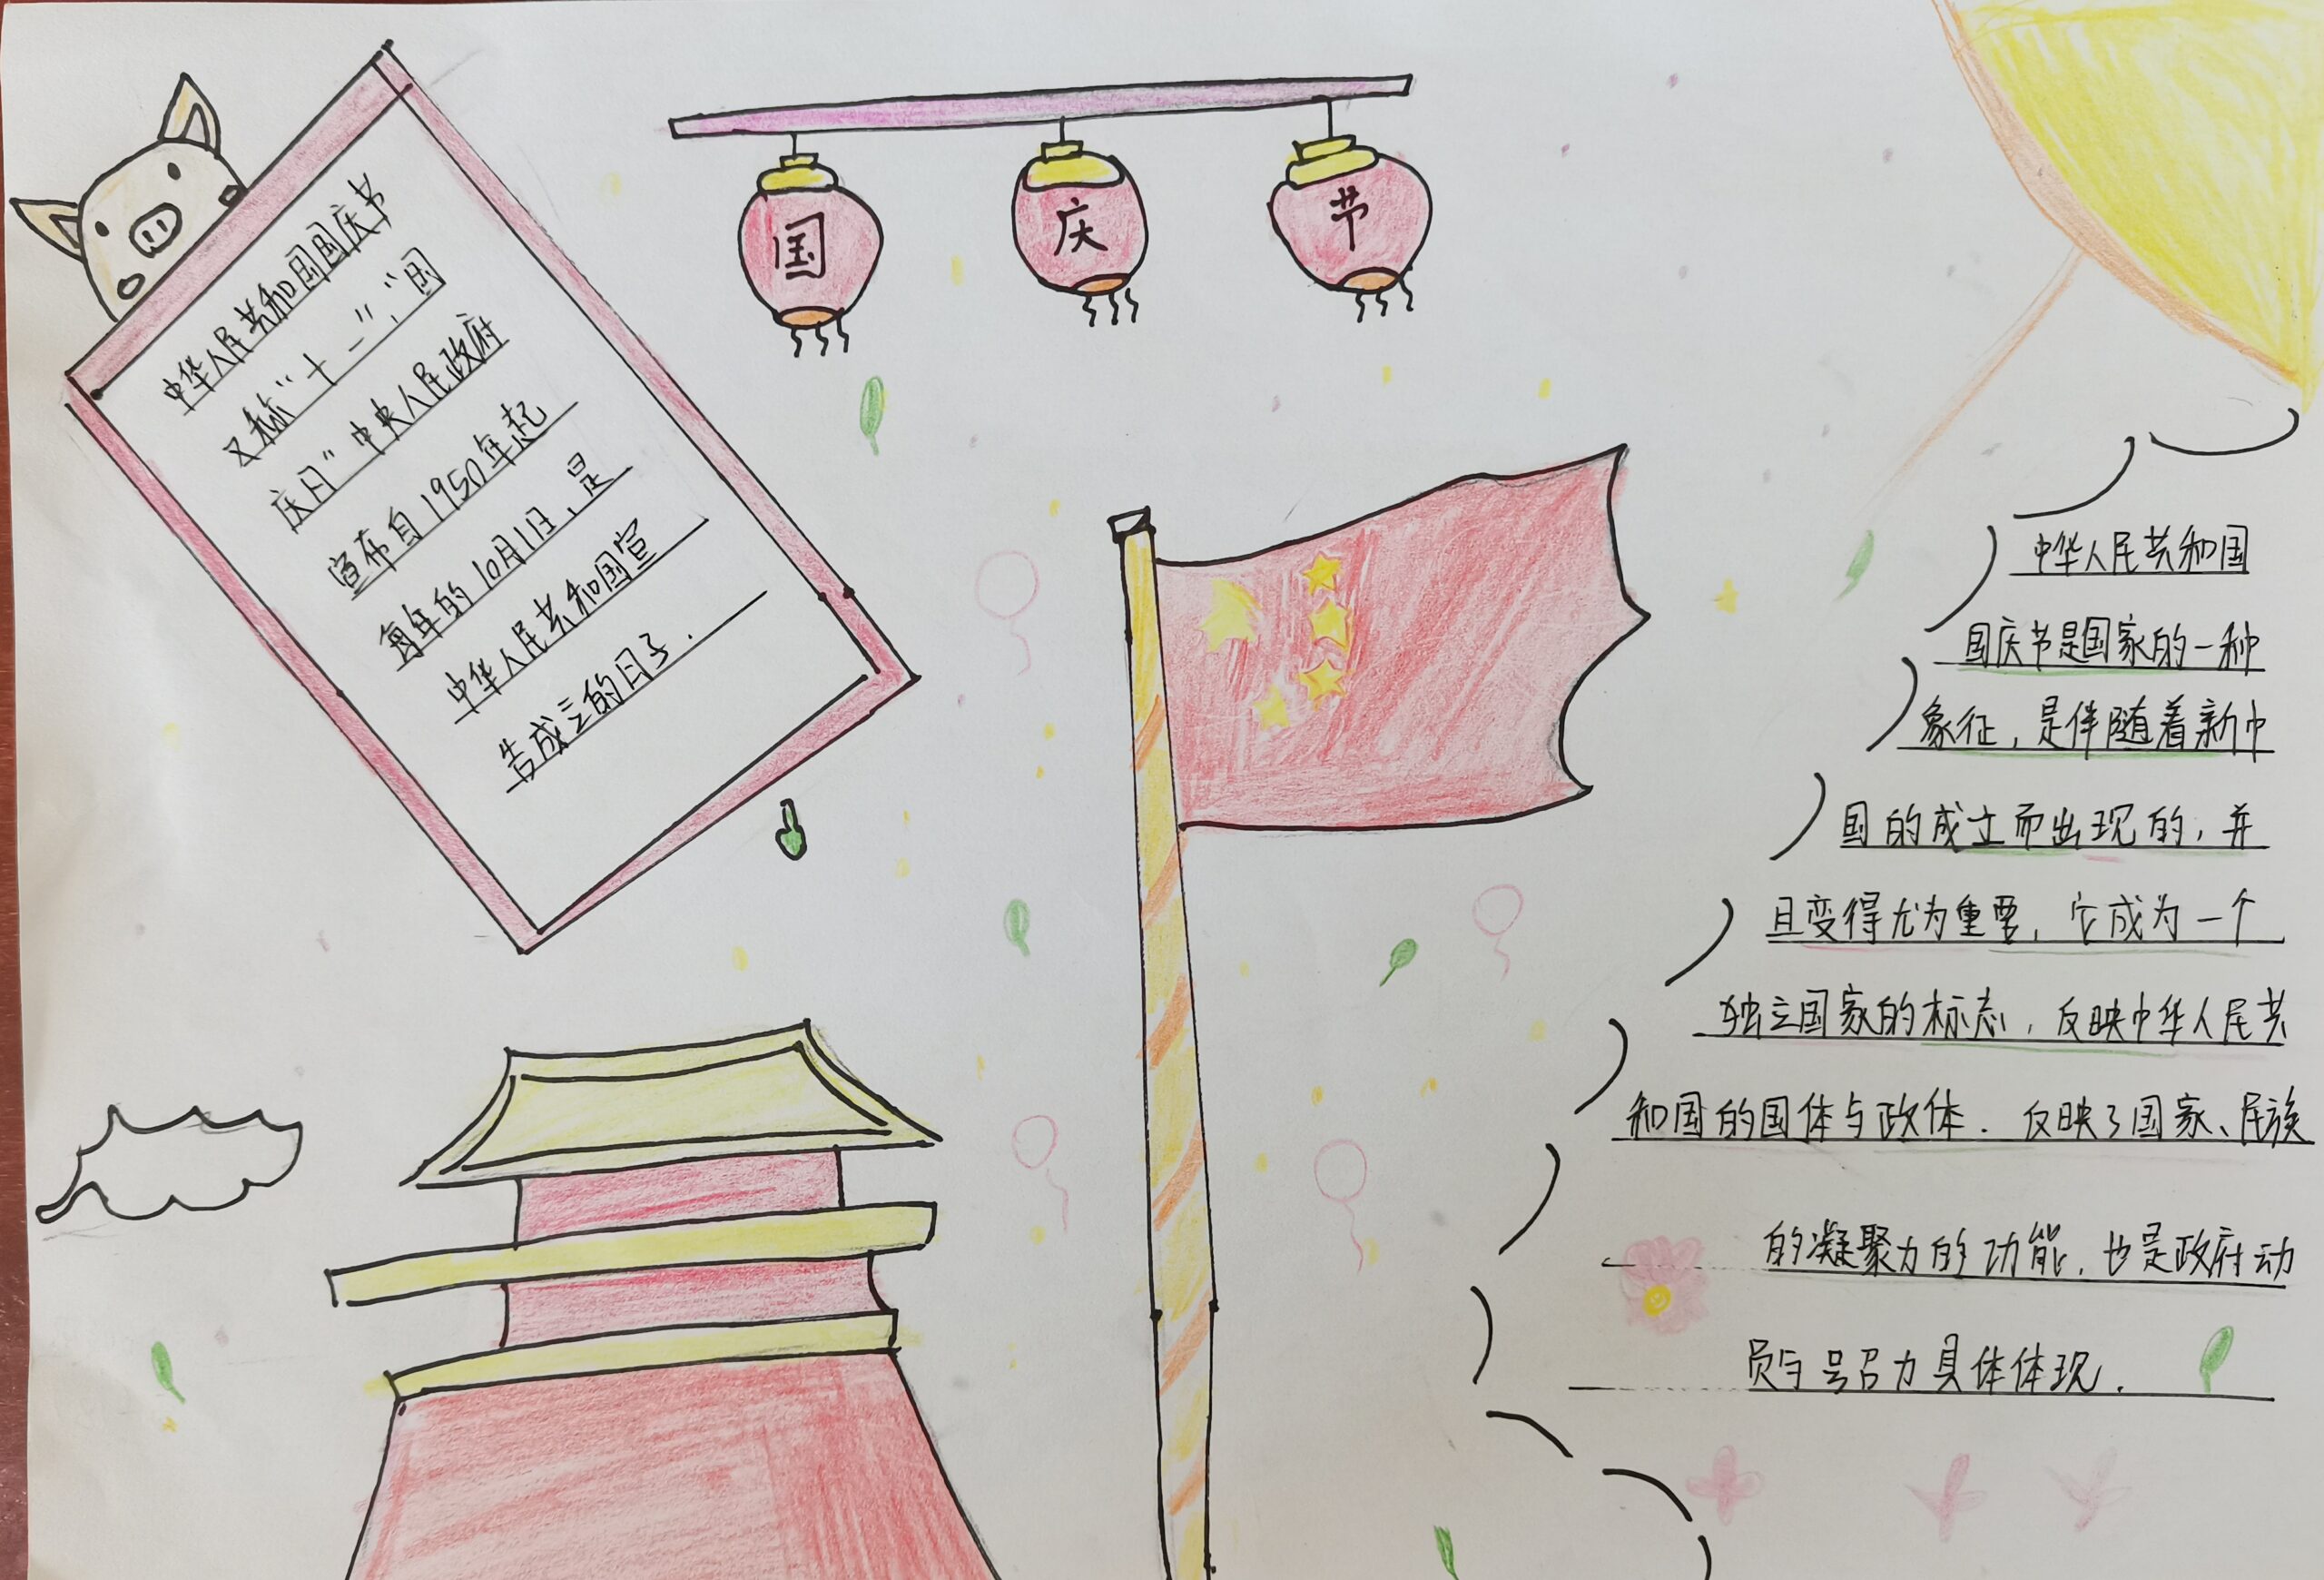 国庆节
中华人民共和国国庆节
又称“十一”、“国
庆日”中央人民政府
宣布自1950年起
每年的10月1日，是
中华人民共和国宣
告成立的日子.
中华人民共和国
国庆节是国家的一种
象征，是伴随着新中
国的成立而出现的，并
且变得尤为重要，它成为一个
独立国家的标志，反映中华人民共
和国的国体与政体. 反映了国家、民族
的凝聚力的功能，也是政府动
员与号召力具体体现.